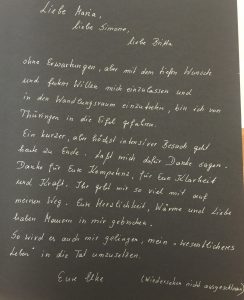 Liebe Maria,
liebe Simone,
liebe Britta
ohne Erwartungen, aber mit dem tiefen Wunsche
und festen Willen mich einzulassen und
in den Wandlungsraum einzutreten, bin ich von
Thüringen in die Eifel gefahren.
Ein kurzer, aber höchst intensiver Besuch geht
heute zu Ende. Laßt mich dafür Danke sagen.
Danke für Eure Kompetenz, für Eure Klarheit
und Kraft. Ihr gebt mir so viel mit auf
meinen Weg. Eure Herzlichkeit, Wärme und Liebe
haben Mauern in mir gebrochen.
So wird es auch mir gelingen, mein „wesentlicheres
Leben" in die Tat umzusetzen.
Eure Elke
(Wiedersehen nicht ausgeschlossen)